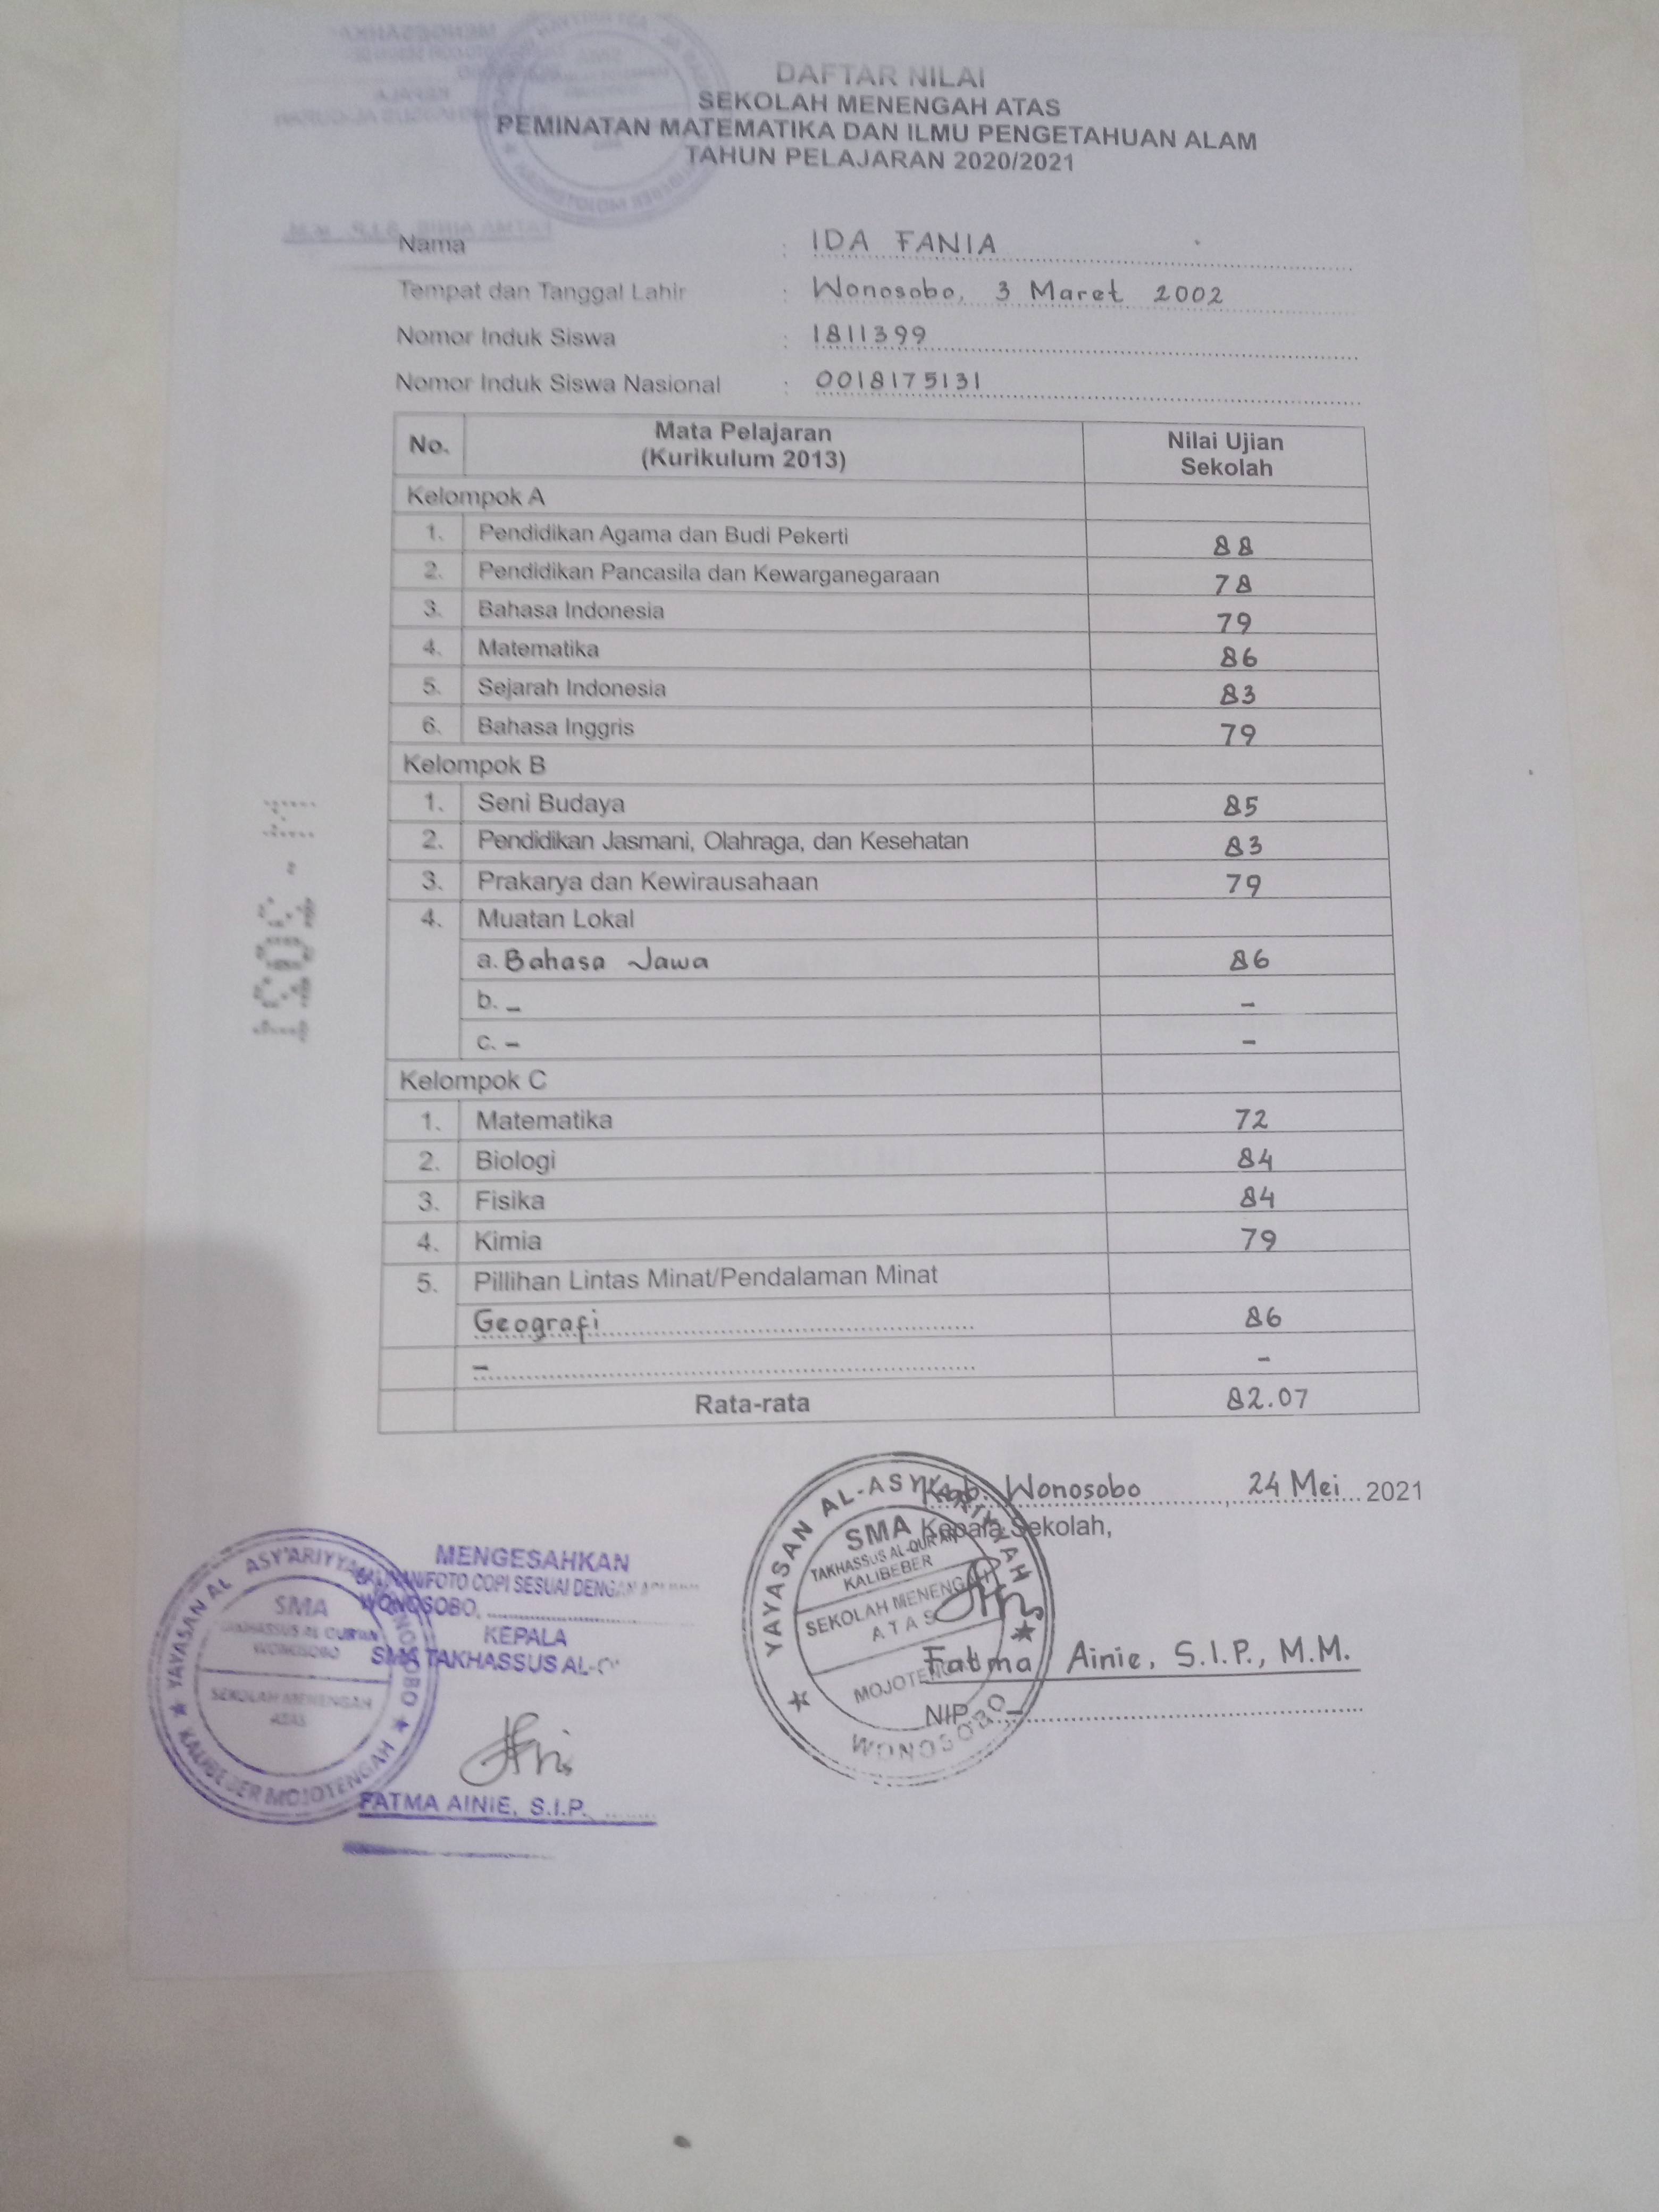 DAFTAR NILAI
SEKOLAH MENENGAH ATAS
PEMINATAN MATEMATIKA DAN ILMU PENGETAHUAN ALAM
TAHUN PELAJARAN 2020/2021
Nama : IDA FANIA
Tempat dan Tanggal Lahir : Wonosobo, 3 Maret 2002
Nomor Induk Siswa : 1811399
Nomor Induk Siswa Nasional : 0018175131
No. Mata Pelajaran (Kurikulum 2013) Nilai Ujian Sekolah
Kelompok A
1. Pendidikan Agama dan Budi Pekerti 88
2. Pendidikan Pancasila dan Kewarganegaraan 78
3. Bahasa Indonesia 79
4. Matematika 86
5. Sejarah Indonesia 83
6. Bahasa Inggris 79
Kelompok B
1. Seni Budaya 85
2. Pendidikan Jasmani, Olahraga, dan Kesehatan 83
3. Prakarya dan Kewirausahaan 79
4. Muatan Lokal
a. Bahasa Jawa 86
b. – –
c. – –
Kelompok C
1. Matematika 72
2. Biologi 84
3. Fisika 84
4. Kimia 79
5. Pillihan Lintas Minat/Pendalaman Minat
Geografi 86
– –
Rata-rata 82.07
Kab. Wonosobo, 24 Mei 2021
Kepala Sekolah,
Fatma Ainie, S.I.P., M.M.
NIP. –
YAYASAN AL-ASY'ARIYYAH
SMA
TAKHASSUS AL-QUR'AN
KALIBEBER
SEKOLAH MENENGAH
ATAS
MOJOTENGAH
WONOSOBO
MENGESAHKAN
FOTO COPI SESUAI DENGAN
WONOSOBO,
KEPALA
SMA TAKHASSUS AL-
FATMA AINIE, S.I.P.
YAYASAN AL ASY'ARIYYAH
SMA
TAKHASSUS AL QUR'AN
WONOSOBO
SEKOLAH MENENGAH
ATAS
KALIBEBER MOJOTENGAH WONOSOBO